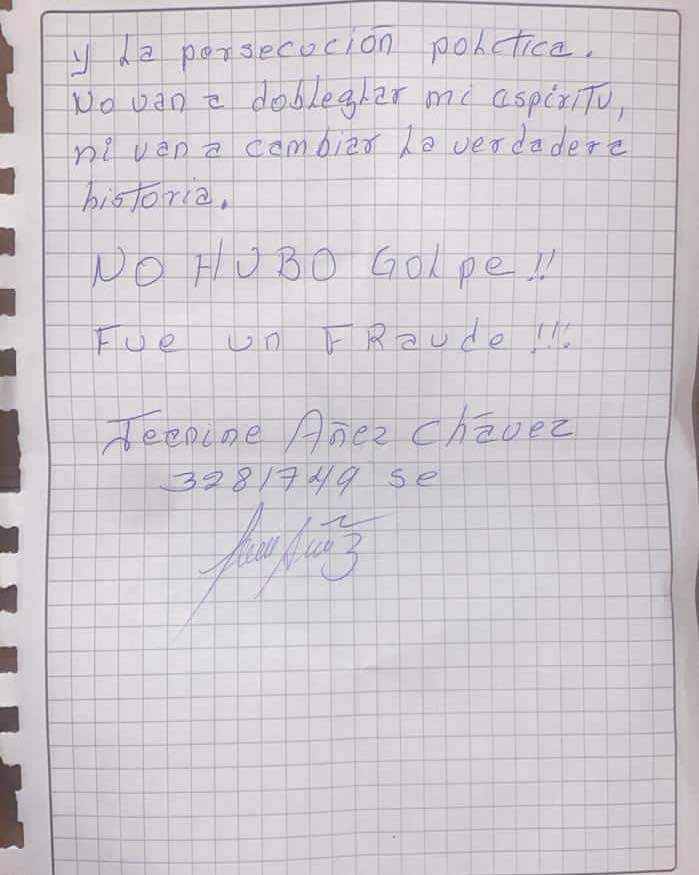 y La persecución política.
No van a doblegar mi espíritu,
ni van a cambiar La verdadera
historia.
NO HUBO GOLpe!!
Fue un FRaude!!!
Jeanine Añez Chávez
3281749 se